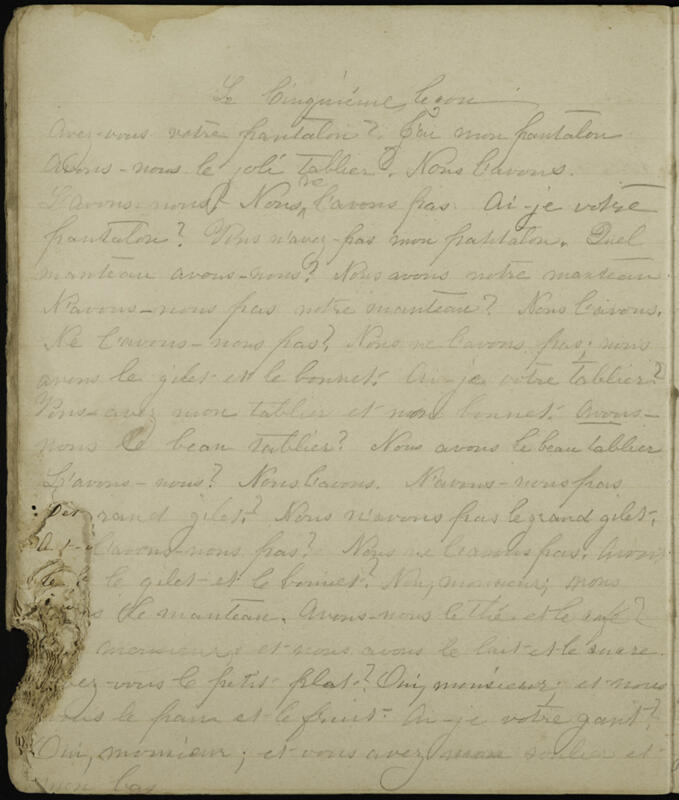 La Cinquième leçon
Avez-vous votre pantalon? J'ai mon pantalon
Avons-nous le joli tablier? Nous l'avons.
L'avons-nous? Nous ne l'avons pas. Ai-je votre
pantalon? Vous n'avez-pas mon pantalon. Quel
manteau avons-nous? Nous avons notre manteau.
N'avons-nous pas notre manteau? Nous l'avons.
Ne l'avons-nous pas? Nous ne l'avons pas; nous
avons le gilet et le bonnet. Ai-je votre tablier?
Vous-avez mon tablier et mon bonnet. Avons-
nous le beau tablier? Nous avons le beau tablier
L'avons-nous? Nous l'avons. N'avons-nous pas
rand gilet? Nous n'avons pas le grand gilet.
l'avons-nous pas? Nous ne l'avons pas. Avons
le gilet et le bonnet? Non, monsieur; nous
le manteau. Avons-nous le thé et le café?
monsieur; et nous avons le lait et le sucre.
ez-vous le petit plat? Oui, monsieur; et nous
ons le pain et le fruit. Ai-je votre gant?
Oui, monsieur; et vous avez mon soulier et
mon bas